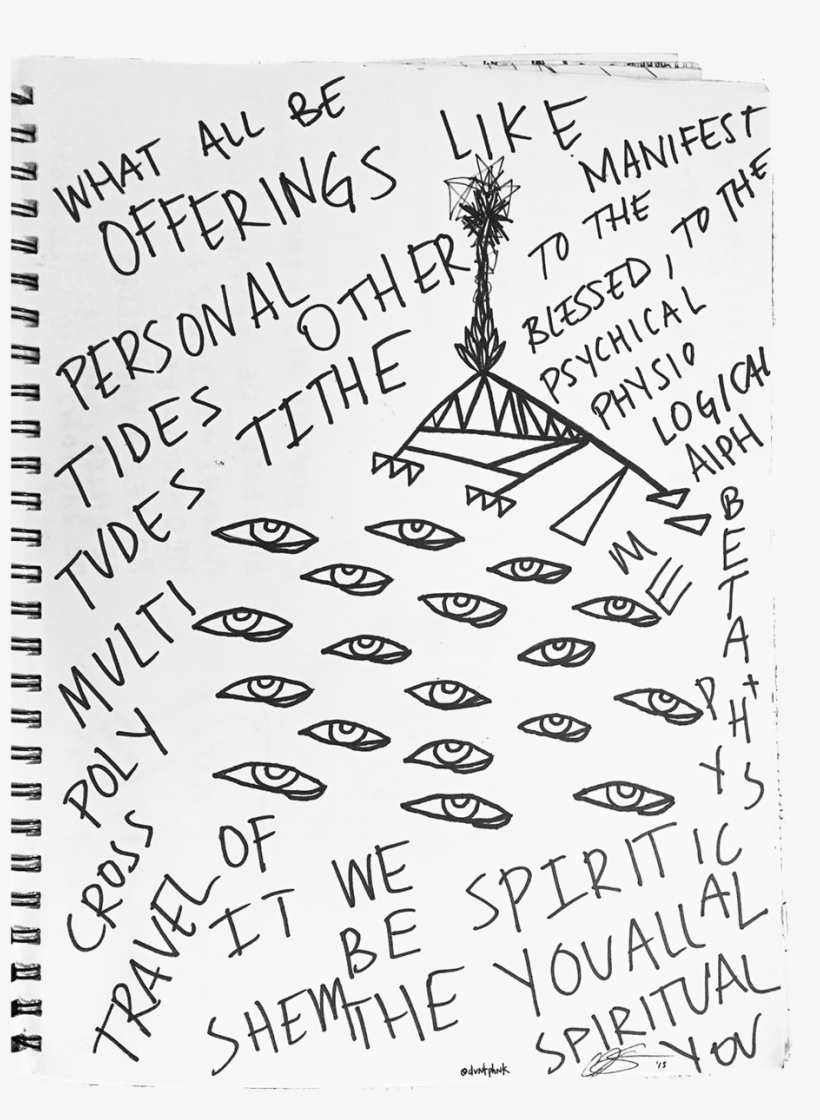 WHAT ALL BE
OFFERINGS
PERSONAL OTHER
TIDES TITHE
TVDES
MVLTI
POLY
CROSS
TRAVEL OF
IT
LIKE
MANIFEST
TO THE
BLESSED, TO THE
PSYCHICAL
PHYSIO
LOGICAL
AlPH
BETA
ME
PHYS
WE
BE
SHEM THE
SPIRITIC
YOUALL AL
SPIRITUAL
YOU
'15
@dvntphnk